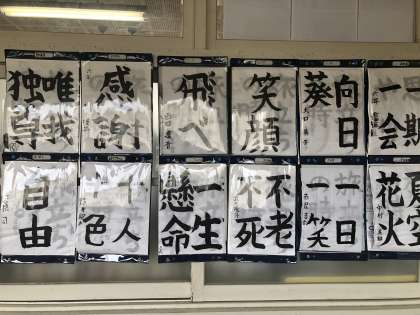 一期
一会
向日
葵
笑顔
飛べ
感謝
唯我
独尊
夏空
花火
一日
一笑
不老
不死
一生
懸命
十人
十色
自由